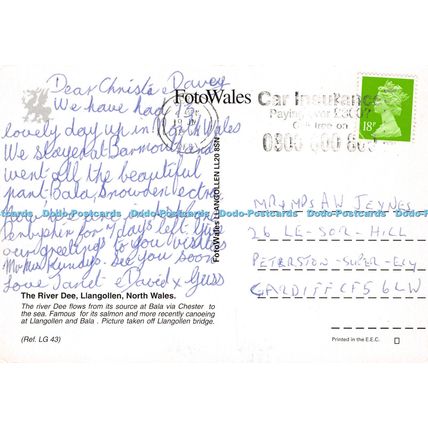 Dear Christie & Davey
We have had 7
lovely day up in North Wales
We stayed at Barmouth
went all the beautiful
Bala, Snowdon ectra
for 7 days left give
our greetings to you
See you soon
Love Janet & David x
The River Dee, Llangollen, North Wales.
The river Dee flows from its source at Bala via Chester to
the sea. Famous for its salmon and more recently canoeing
at Llangollen and Bala . Picture taken off Llangollen bridge.
(Ref. LG 43)
FotoWales
FotoWales LLANGOLLEN LL20 8SN
Car Insurance
Paying over £300?
Call free on
0800 600 800
18P
MR & MRS A W JEYNES
26 LE-SOR-HILL
PETERSTON-SUPER-ELY
CARDIFF CF5 6LW
Printed in the E.E.C.
Dodo-Postcards Dodo-Postcards Dodo-Postcards Dodo-Postcards Dodo-Postcards